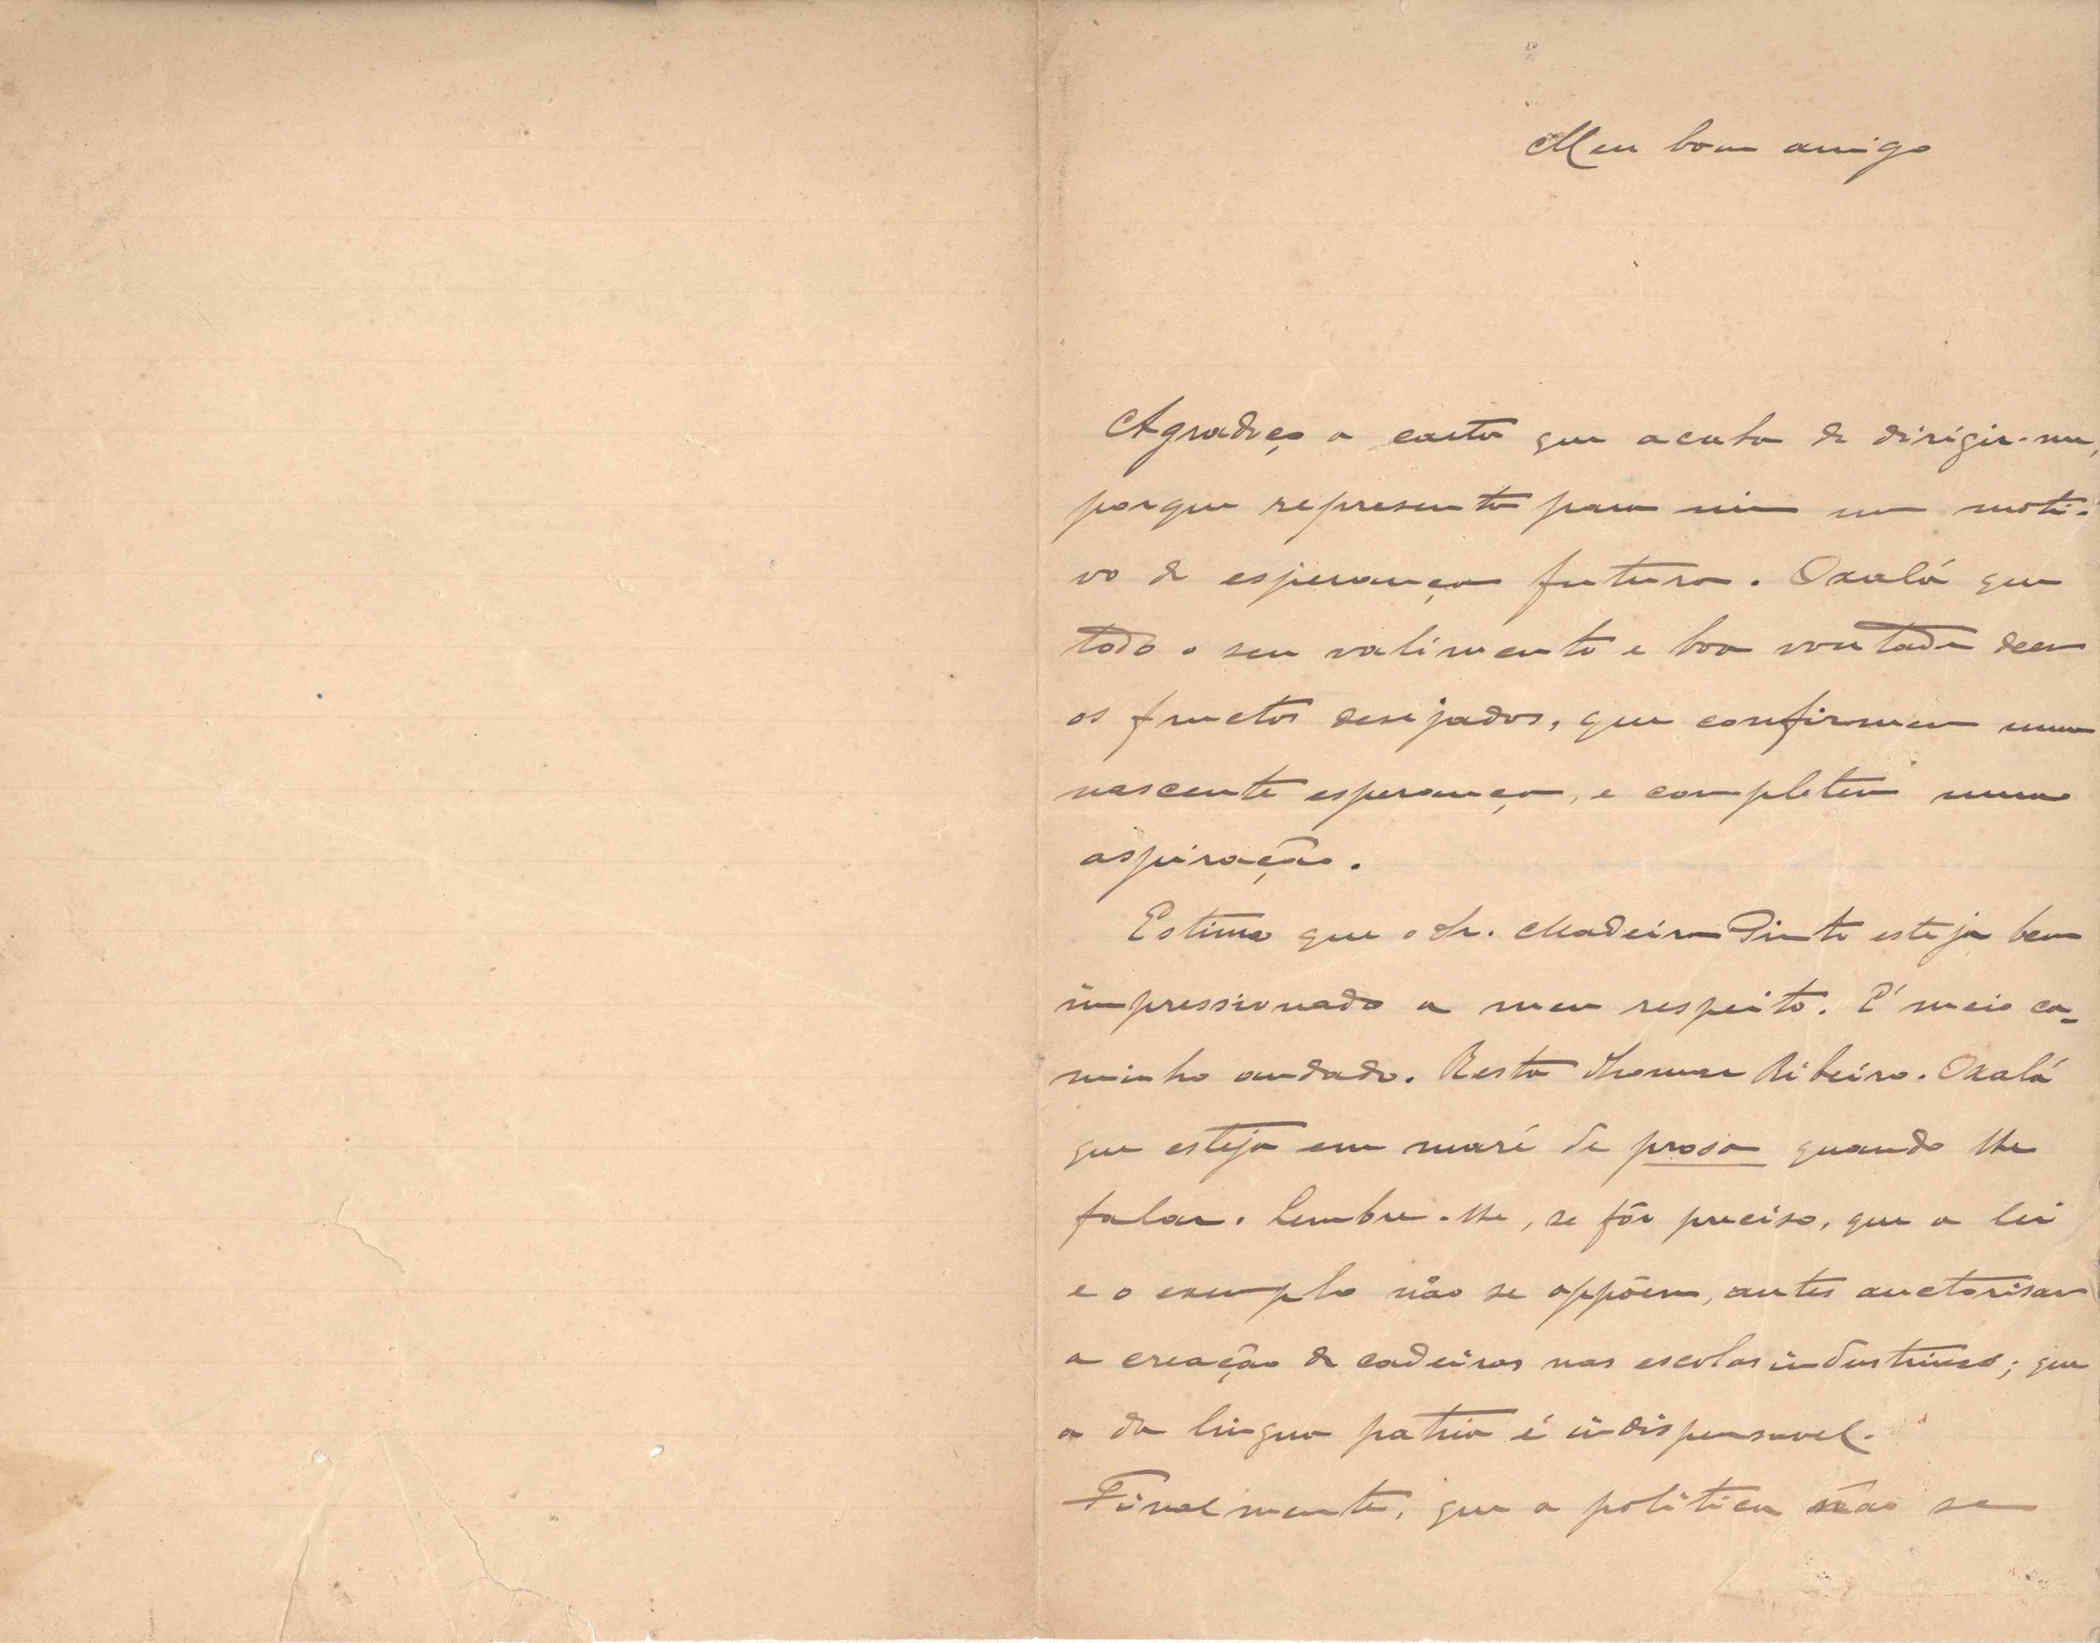 Meu bom amigo
Agradeço a carta que acaba de dirigir-me,
porque representa para mim um moti-
vo de esperança futura. Oxalá que
todo o seu valimento e boa vontade deem
os fructos desejados, que confirmem uma
nascente esperança, e completem uma
aspiração.
Estimo que o Sr. Madeira Pinto esteja bem
impressionado a meu respeito. É meio ca-
minho andado. Resta Thomaz Ribeiro. Oxalá
que esteja em maré de prosa quando lhe
falar. Lembre-lhe, se fôr preciso, que a lei
e o exemplo não se oppõem, antes auctorisam
a creação de cadeiras nas escolas industriaes; que
a da lingua patria é indispensavel.
Finalmente, que a politica não se